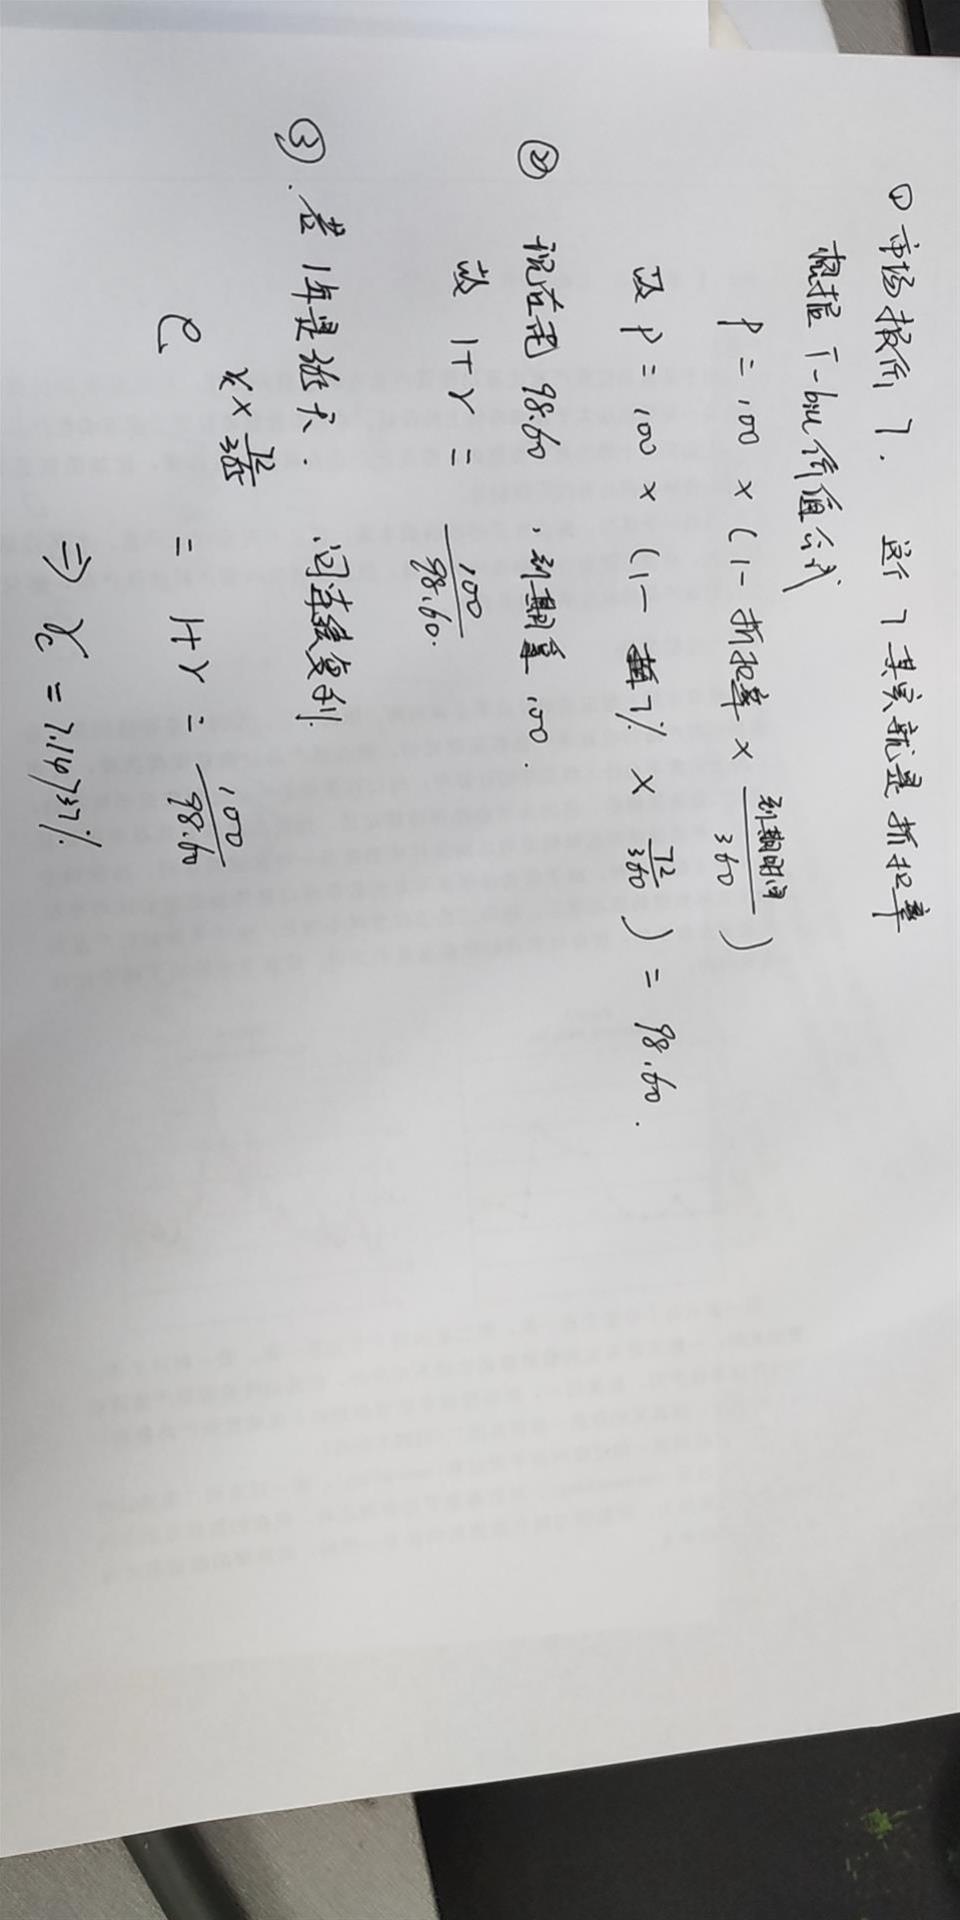 ① 市场报价 7. 这个 7 其实就是折扣率
根据 T-bill 价值公式
P = 100 × (1 - 折扣率 × 到期时间/360)
故 P = 100 × (1 - 7% × 72/360) = 98.60.
② 现在花 98.60. 到期拿 100.
故 1+r = 100/98.60.
③. 若 1年是 365 天. 问连续复利.
e^(r_c × 72/365) = 1+r = 100/98.60
⇒ r_c = 7.14737%